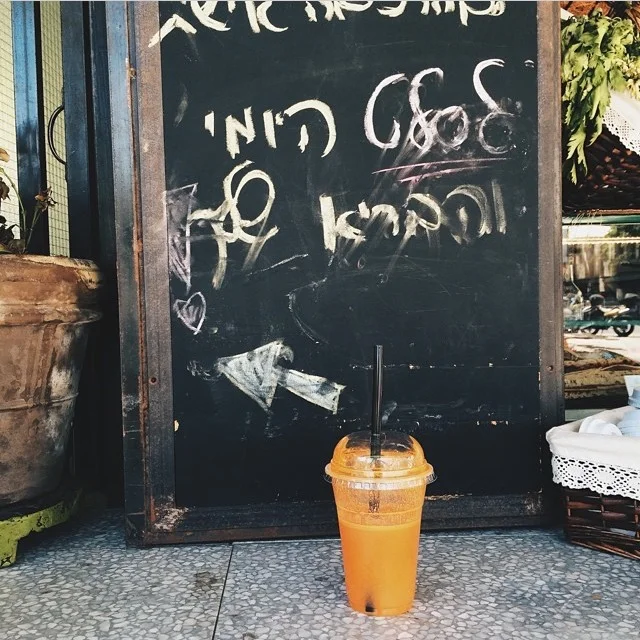 לסלט היומי
והבריא שלך